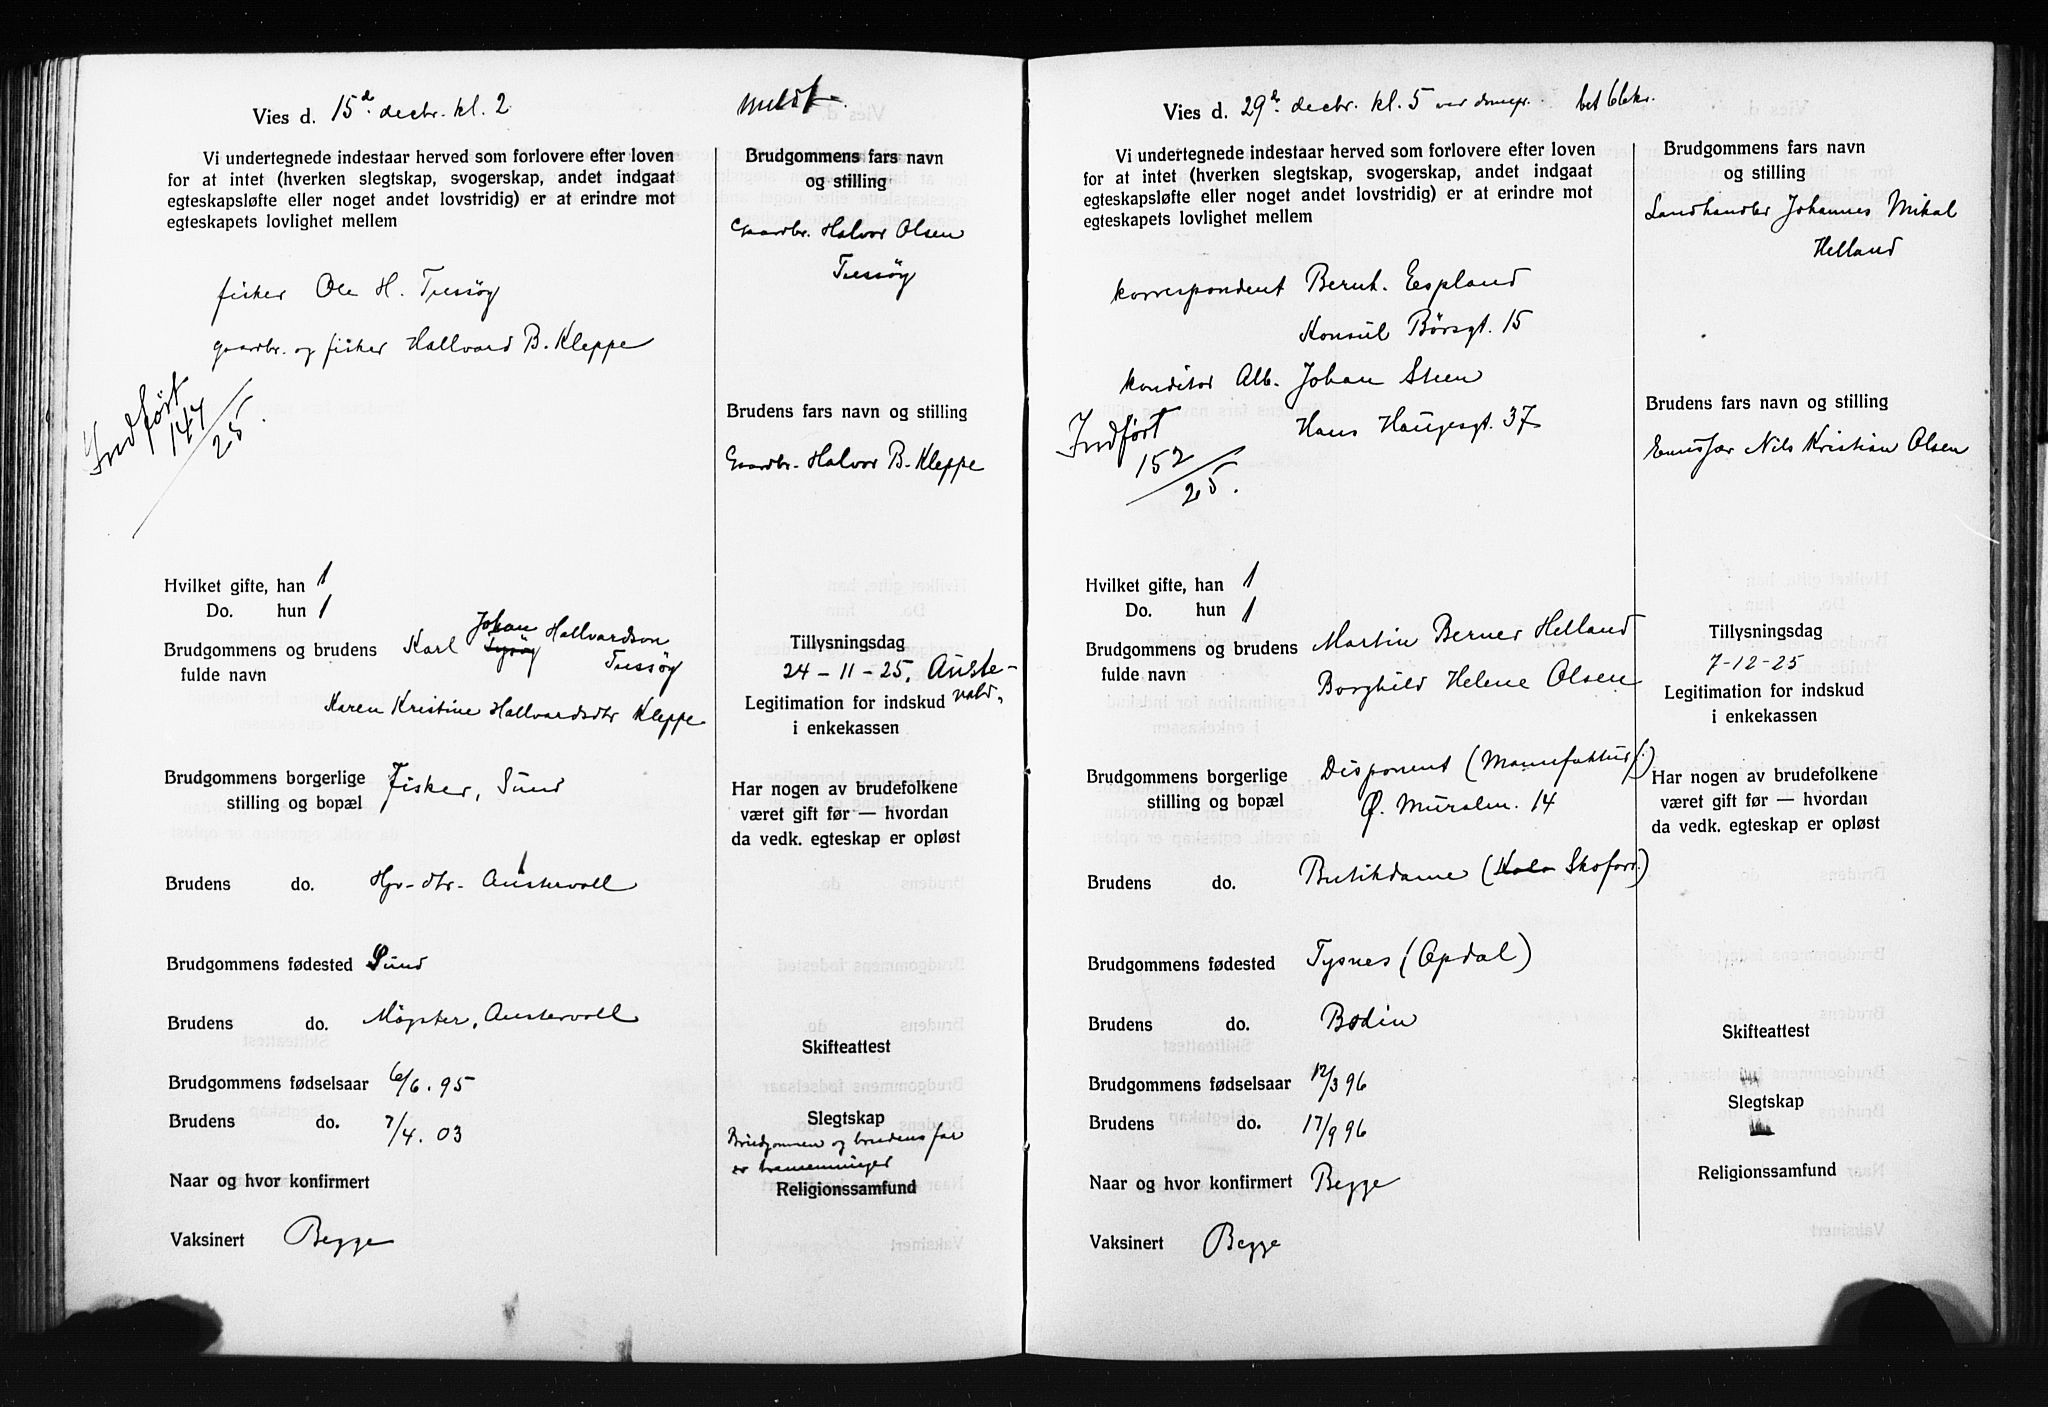 Vies d. 15d decbr. kl. 2
Vi undertegnede indestaar herved som forlovere efter loven
for at intet (hverken slegtskap, svogerskap, andet indgaat
egteskapsløfte eller noget andet lovstridig) er at erindre mot
egteskapets lovlighet mellem
fisker Ole H. Tussøy
gaardbr. og fisker Hallvard B. Kleppe
Indført
147
25.
Hvilket gifte, han 1
Do. hun 1
Brudgommens og brudens
fulde navn
Karl Johan Hallvardson
Tussøy
Karen Kristine Hallvardsdtr Kleppe
Brudgommens borgerlige
stilling og bopæl
Fisker, Sund
Brudens do. Austevoll
Brudgommens fødested Sund
Brudens do. Møgster, Austevoll
Brudgommens fødselsaar 6/6. 95
Brudens do. 7/4. 03
Naar og hvor konfirmert
Vaksinert Begge
Brudgommens fars navn
og stilling
Gaardbr. Halvor Olsen
Tussøy
Brudens fars navn og stilling
Gaardbr. Halvor B. Kleppe
Tillysningsdag
24-11-25. Auste-
vold.
Legitimation for indskud
i enkekassen
Har nogen av brudefolkene
været gift før — hvordan
da vedk. egteskap er opløst
Skifteattest
Slegtskap
Brudgommen og brudens far
er tremenninger
Religionssamfund
Vies d. 29d decbr. kl. 5 bet 66kr.
Vi undertegnede indestaar herved som forlovere efter loven
for at intet (hverken slegtskap, svogerskap, andet indgaat
egteskapsløfte eller noget andet lovstridig) er at erindre mot
egteskapets lovlighet mellem
korrespondent Bernt. Espland
Konsul Børsgt. 15
konditor Alb. Johan Steen
Hans Haugesgt. 37
Indført
152
25.
Hvilket gifte, han 1
Do. hun 1
Brudgommens og brudens
fulde navn
Martin Berner Helland
Borghild Helene Olsen
Brudgommens borgerlige
stilling og bopæl
Disponent (Manufakturf.)
Ø. Muralm. 14
Brudens do. Butikdame (Skoforr.)
Brudgommens fødested Tysnes (Opdal)
Brudens do. Bodin
Brudgommens fødselsaar 12/3 96
Brudens do. 17/9 96
Naar og hvor konfirmert Begge
Vaksinert Begge
Brudgommens fars navn
og stilling
Landhandler Johannes Mikal
Helland
Brudens fars navn og stilling
Nils Kristian Olsen
Tillysningsdag
7-12-25
Legitimation for indskud
i enkekassen
Har nogen av brudefolkene
været gift før — hvordan
da vedk. egteskap er opløst
Skifteattest
Slegtskap
Religionssamfund